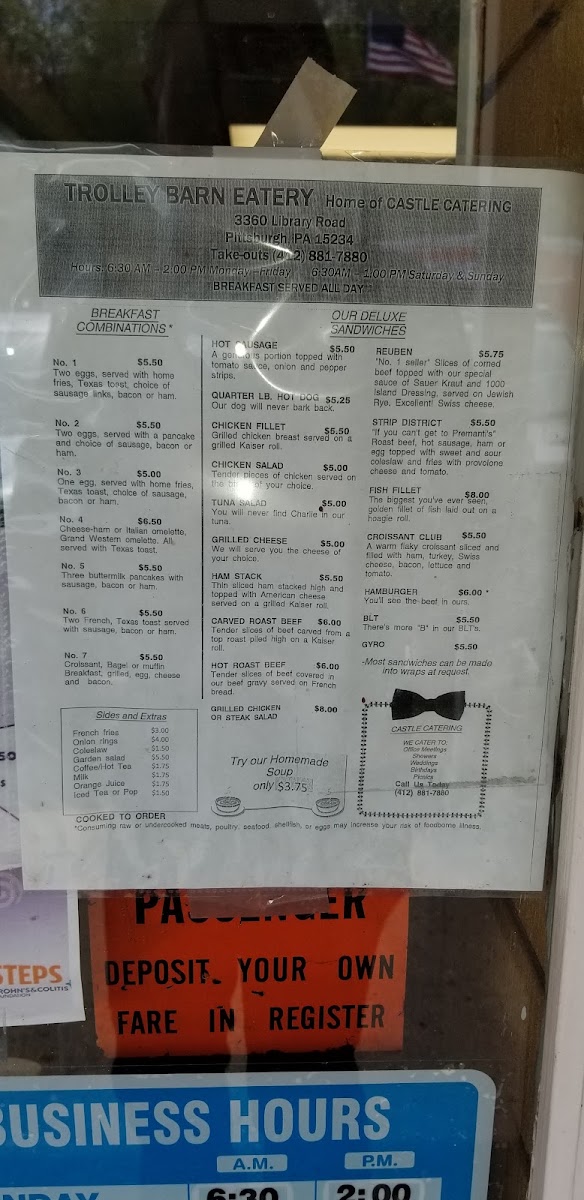 TROLLEY BARN EATERY Home of CASTLE CATERING
3360 Library Road
Pittsburgh, PA 15234
Take-outs (412) 881-7880
Hours: 6:30 AM - 2:00 PM Monday - Friday 6:30AM - 1:00 PM Saturday & Sunday
*BREAKFAST SERVED ALL DAY*
BREAKFAST
COMBINATIONS *
No. 1 $5.50
Two eggs, served with home
fries, Texas toast, choice of
sausage links, bacon or ham.
No. 2 $5.50
Two eggs, served with a pancake
and choice of sausage, bacon or
ham.
No. 3 $5.00
One egg, served with home fries,
Texas toast, choice of sausage,
bacon or ham.
No. 4 $6.50
Cheese-ham or Italian omelette,
Grand Western omelette. All
served with Texas toast.
No. 5 $5.50
Three buttermilk pancakes with
sausage, bacon or ham.
No. 6 $5.50
Two French, Texas toast served
with sausage, bacon or ham.
No. 7 $5.50
Croissant, Bagel or muffin
Breakfast, grilled, egg, cheese
and bacon.
Sides and Extras
French fries $3.00
Onion rings $4.00
Coleslaw $1.50
Garden salad $5.50
Coffee/Hot Tea $1.75
Milk $1.75
Orange Juice $1.75
Iced Tea or Pop $1.50
OUR DELUXE
SANDWICHES
HOT SAUSAGE $5.50
A generous portion topped with
tomato sauce, onion and pepper
strips.
QUARTER LB. HOT DOG $5.25
Our dog will never bark back.
CHICKEN FILLET $5.50
Grilled chicken breast served on a
grilled Kaiser roll.
CHICKEN SALAD $5.00
Tender pieces of chicken served on
the of your choice.
TUNA SALAD $5.00
You will never find Charlie in our
tuna.
GRILLED CHEESE $5.00
We will serve you the cheese of
your choice.
HAM STACK $5.50
Thin sliced ham stacked high and
topped with American cheese
served on a grilled Kaiser roll.
CARVED ROAST BEEF $6.00
Tender slices of beef carved from a
top roast piled high on a Kaiser
roll.
HOT ROAST BEEF $6.00
Tender slices of beef covered in
our beef gravy served on French
bread.
GRILLED CHICKEN $8.00
OR STEAK SALAD
Try our Homemade
Soup
only $3.75
REUBEN $5.75
"No. 1 seller" Slices of corned
beef topped with our special
sauce of Sauer Kraut and 1000
Island Dressing, served on Jewish
Rye. Excellent! Swiss cheese.
STRIP DISTRICT $5.50
"If you can't get to Premanti's"
Roast beef, hot sausage, ham or
egg topped with sweet and sour
coleslaw and fries with provolone
cheese and tomato.
FISH FILLET $8.00
The biggest you've ever seen,
golden fillet of fish laid out on a
hoagie roll.
CROISSANT CLUB $5.50
A warm flaky croissant sliced and
filled with ham, turkey, Swiss
cheese, bacon, lettuce and
tomato.
HAMBURGER $6.00 *
You'll see the beef in ours.
BLT $5.50
There's more "B" in our BLT's.
GYRO $5.50
-Most sandwiches can be made
into wraps at request.
CASTLE CATERING
WE CATER TO:
Office Meetings
Showers
Weddings
Birthdays
Picnics
Call Us Today
(412) 881-7880
COOKED TO ORDER
*Consuming raw or undercooked meats, poultry, seafood, shellfish, or eggs may increase your risk of foodborne illness.
PASSENGER
DEPOSIT YOUR OWN
FARE IN REGISTER
STEPS
CROHN'S&COLITIS
FOUNDATION
BUSINESS HOURS
A.M. P.M.
6:30 2:00